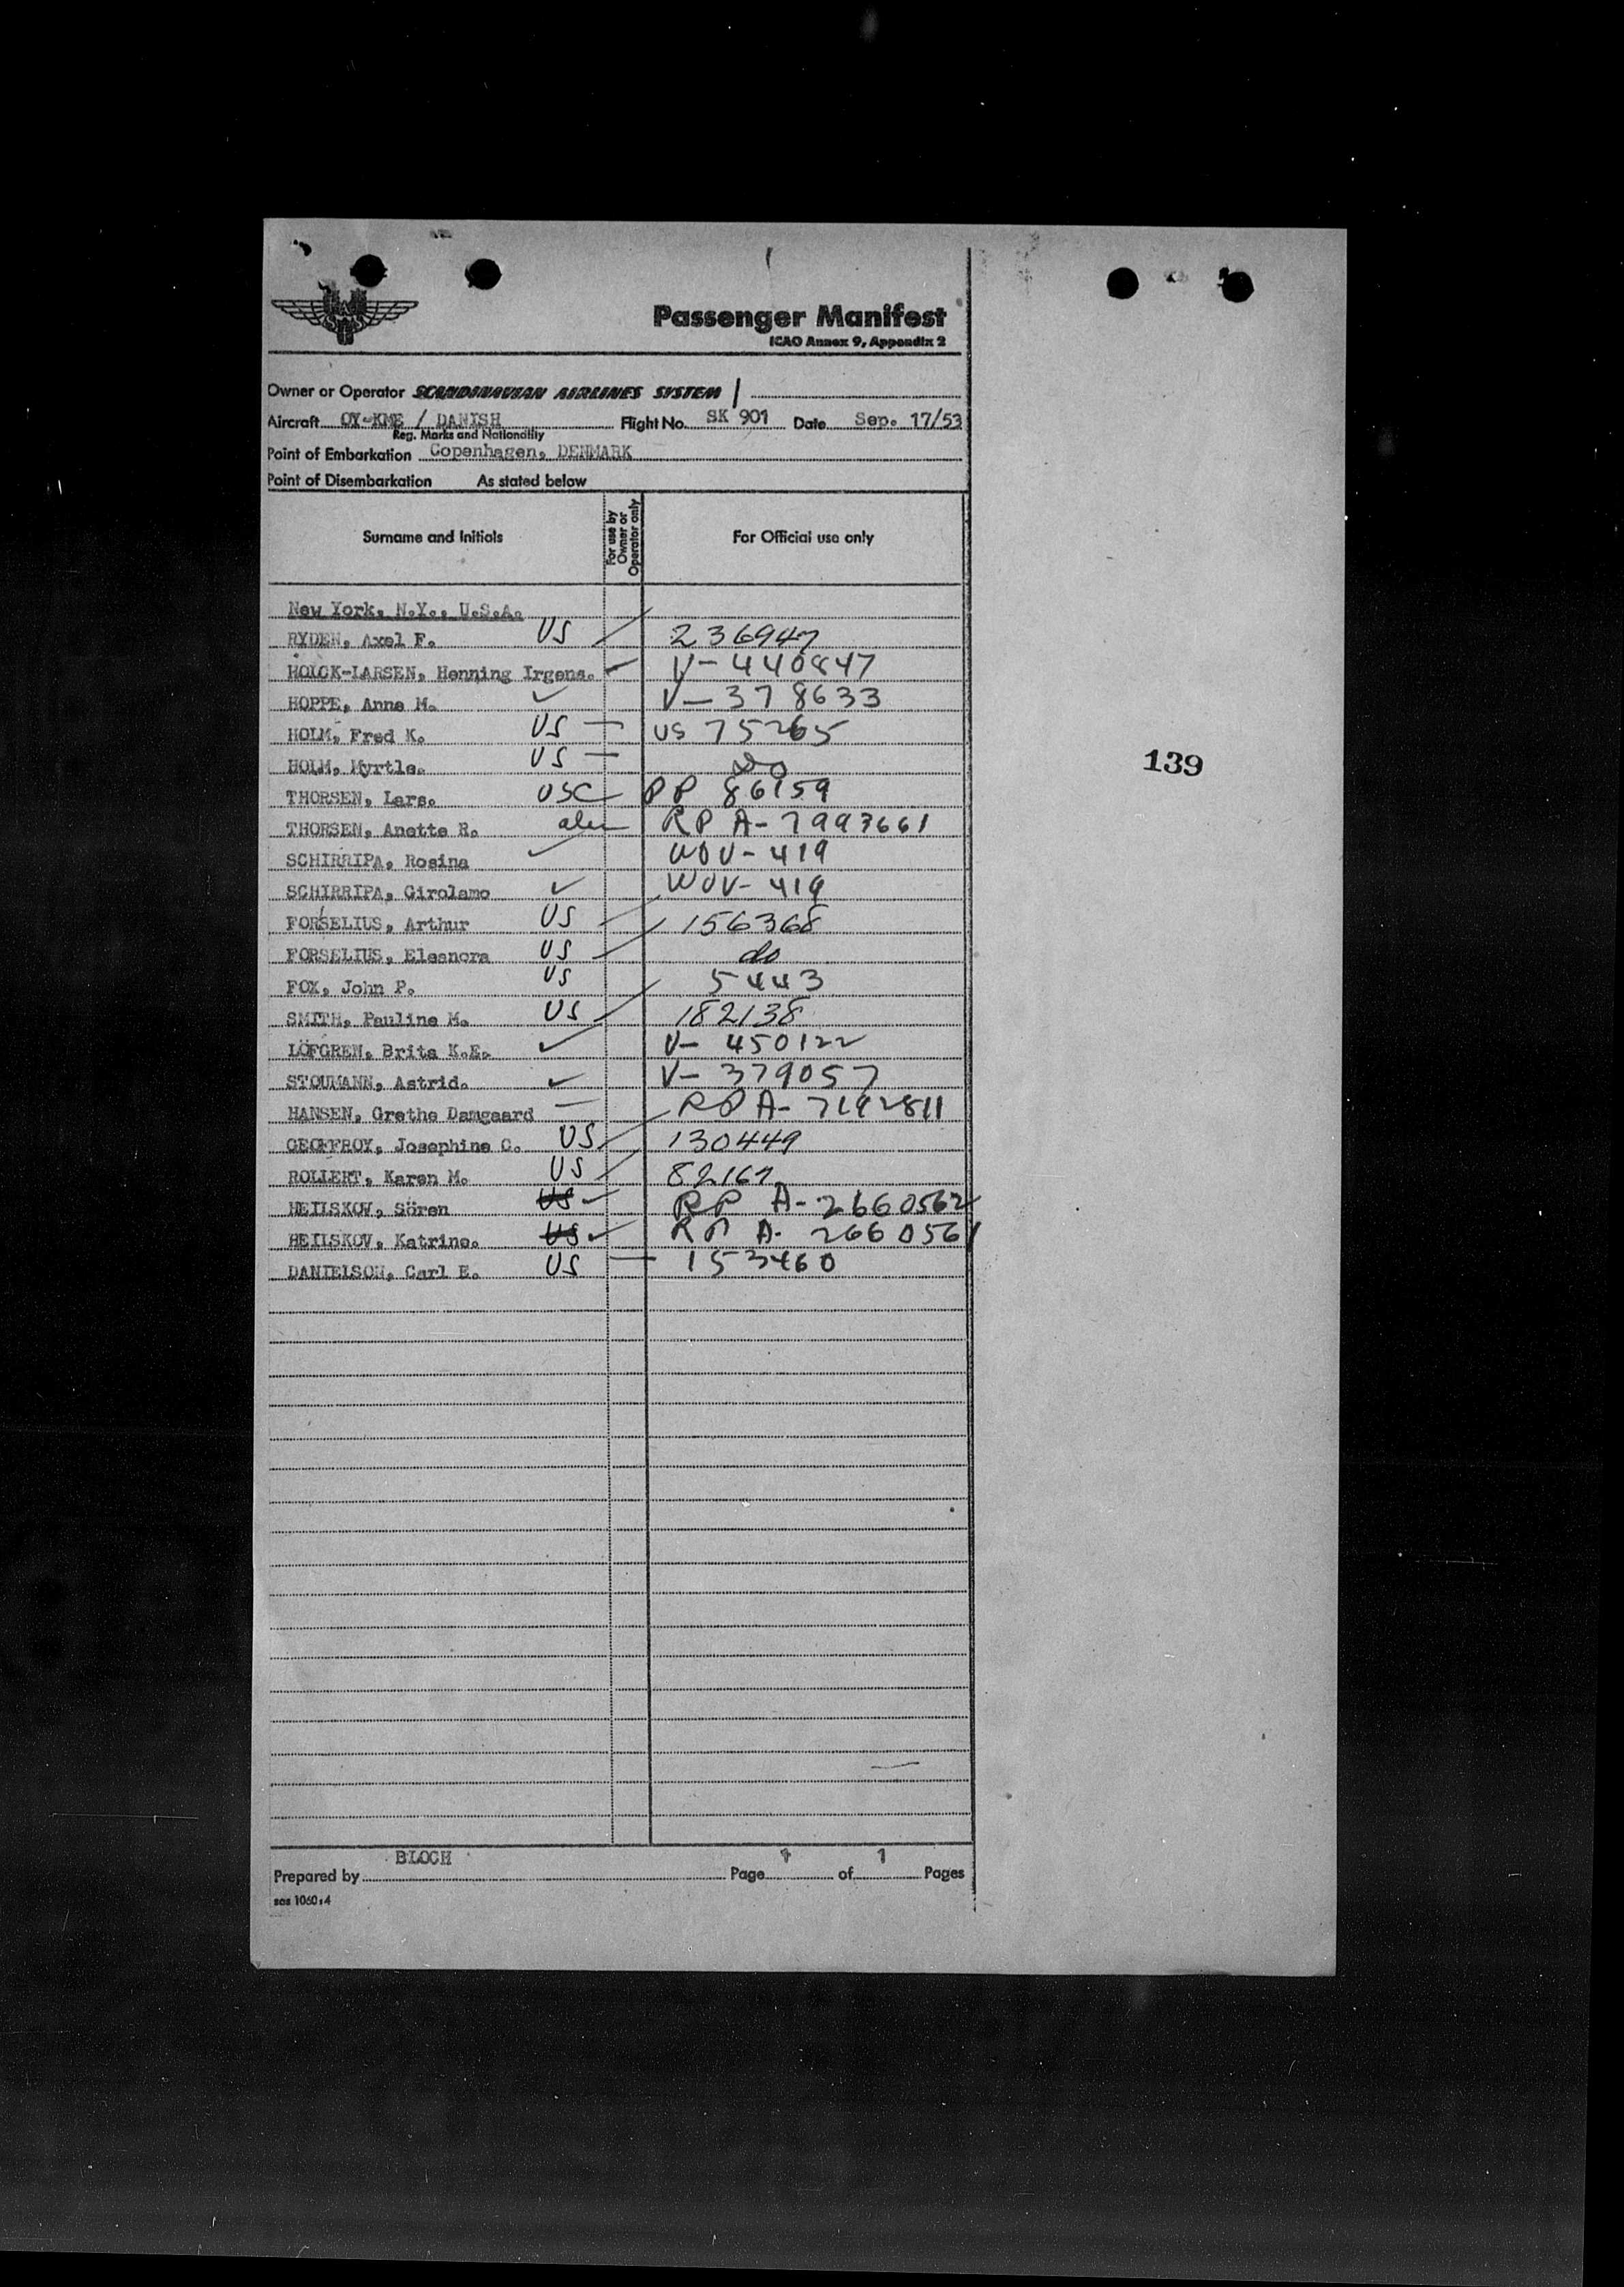 Passenger Manifest
ICAO Annex 9, Appendix 2
Owner or Operator SCANDINAVIAN AIRLINES SYSTEM
Aircraft OY-KME / DANISH Flight No. SK 901 Date Sep. 17/53
Reg. Marks and Nationality
Point of Embarkation Copenhagen, DENMARK
Point of Disembarkation As stated below
Surname and Initials For use by Owner or Operator only For Official use only
New York, N.Y., U.S.A.
RYDEN, Axel F. US 236947
HOLCK-LARSEN, Henning Irgens. V-440847
HOPPE, Anne M. V-378633
HOLM, Fred K. US US 75265
HOLM, Myrtle. US Do
139
THORSEN, Lars. USC PP 86159
THORSEN, Anette R. alien RP A-7993661
SCHIRRIPA, Rosina WOV-419
SCHIRRIPA, Girolamo WOV-419
FORSELIUS, Arthur US 156368
FORSELIUS, Eleanora US do
FOX, John P. US 5443
SMITH, Pauline M. US 182138
LÖFGREN, Brita K.E. V- 450122
STOUMANN, Astrid. V- 379057
HANSEN, Grethe Damgaard RP A- 7192811
GEOFFROY, Josephine C. US 130449
ROLLERT, Karen M. US 82167
HEILSKOV, Sören US RP A-2660562
HEILSKOV, Katrine. US RP A- 2660561
DANIELSON, Carl E. US 153460
Prepared by BLOCH Page 1 of 1 Pages
sas 1060:4